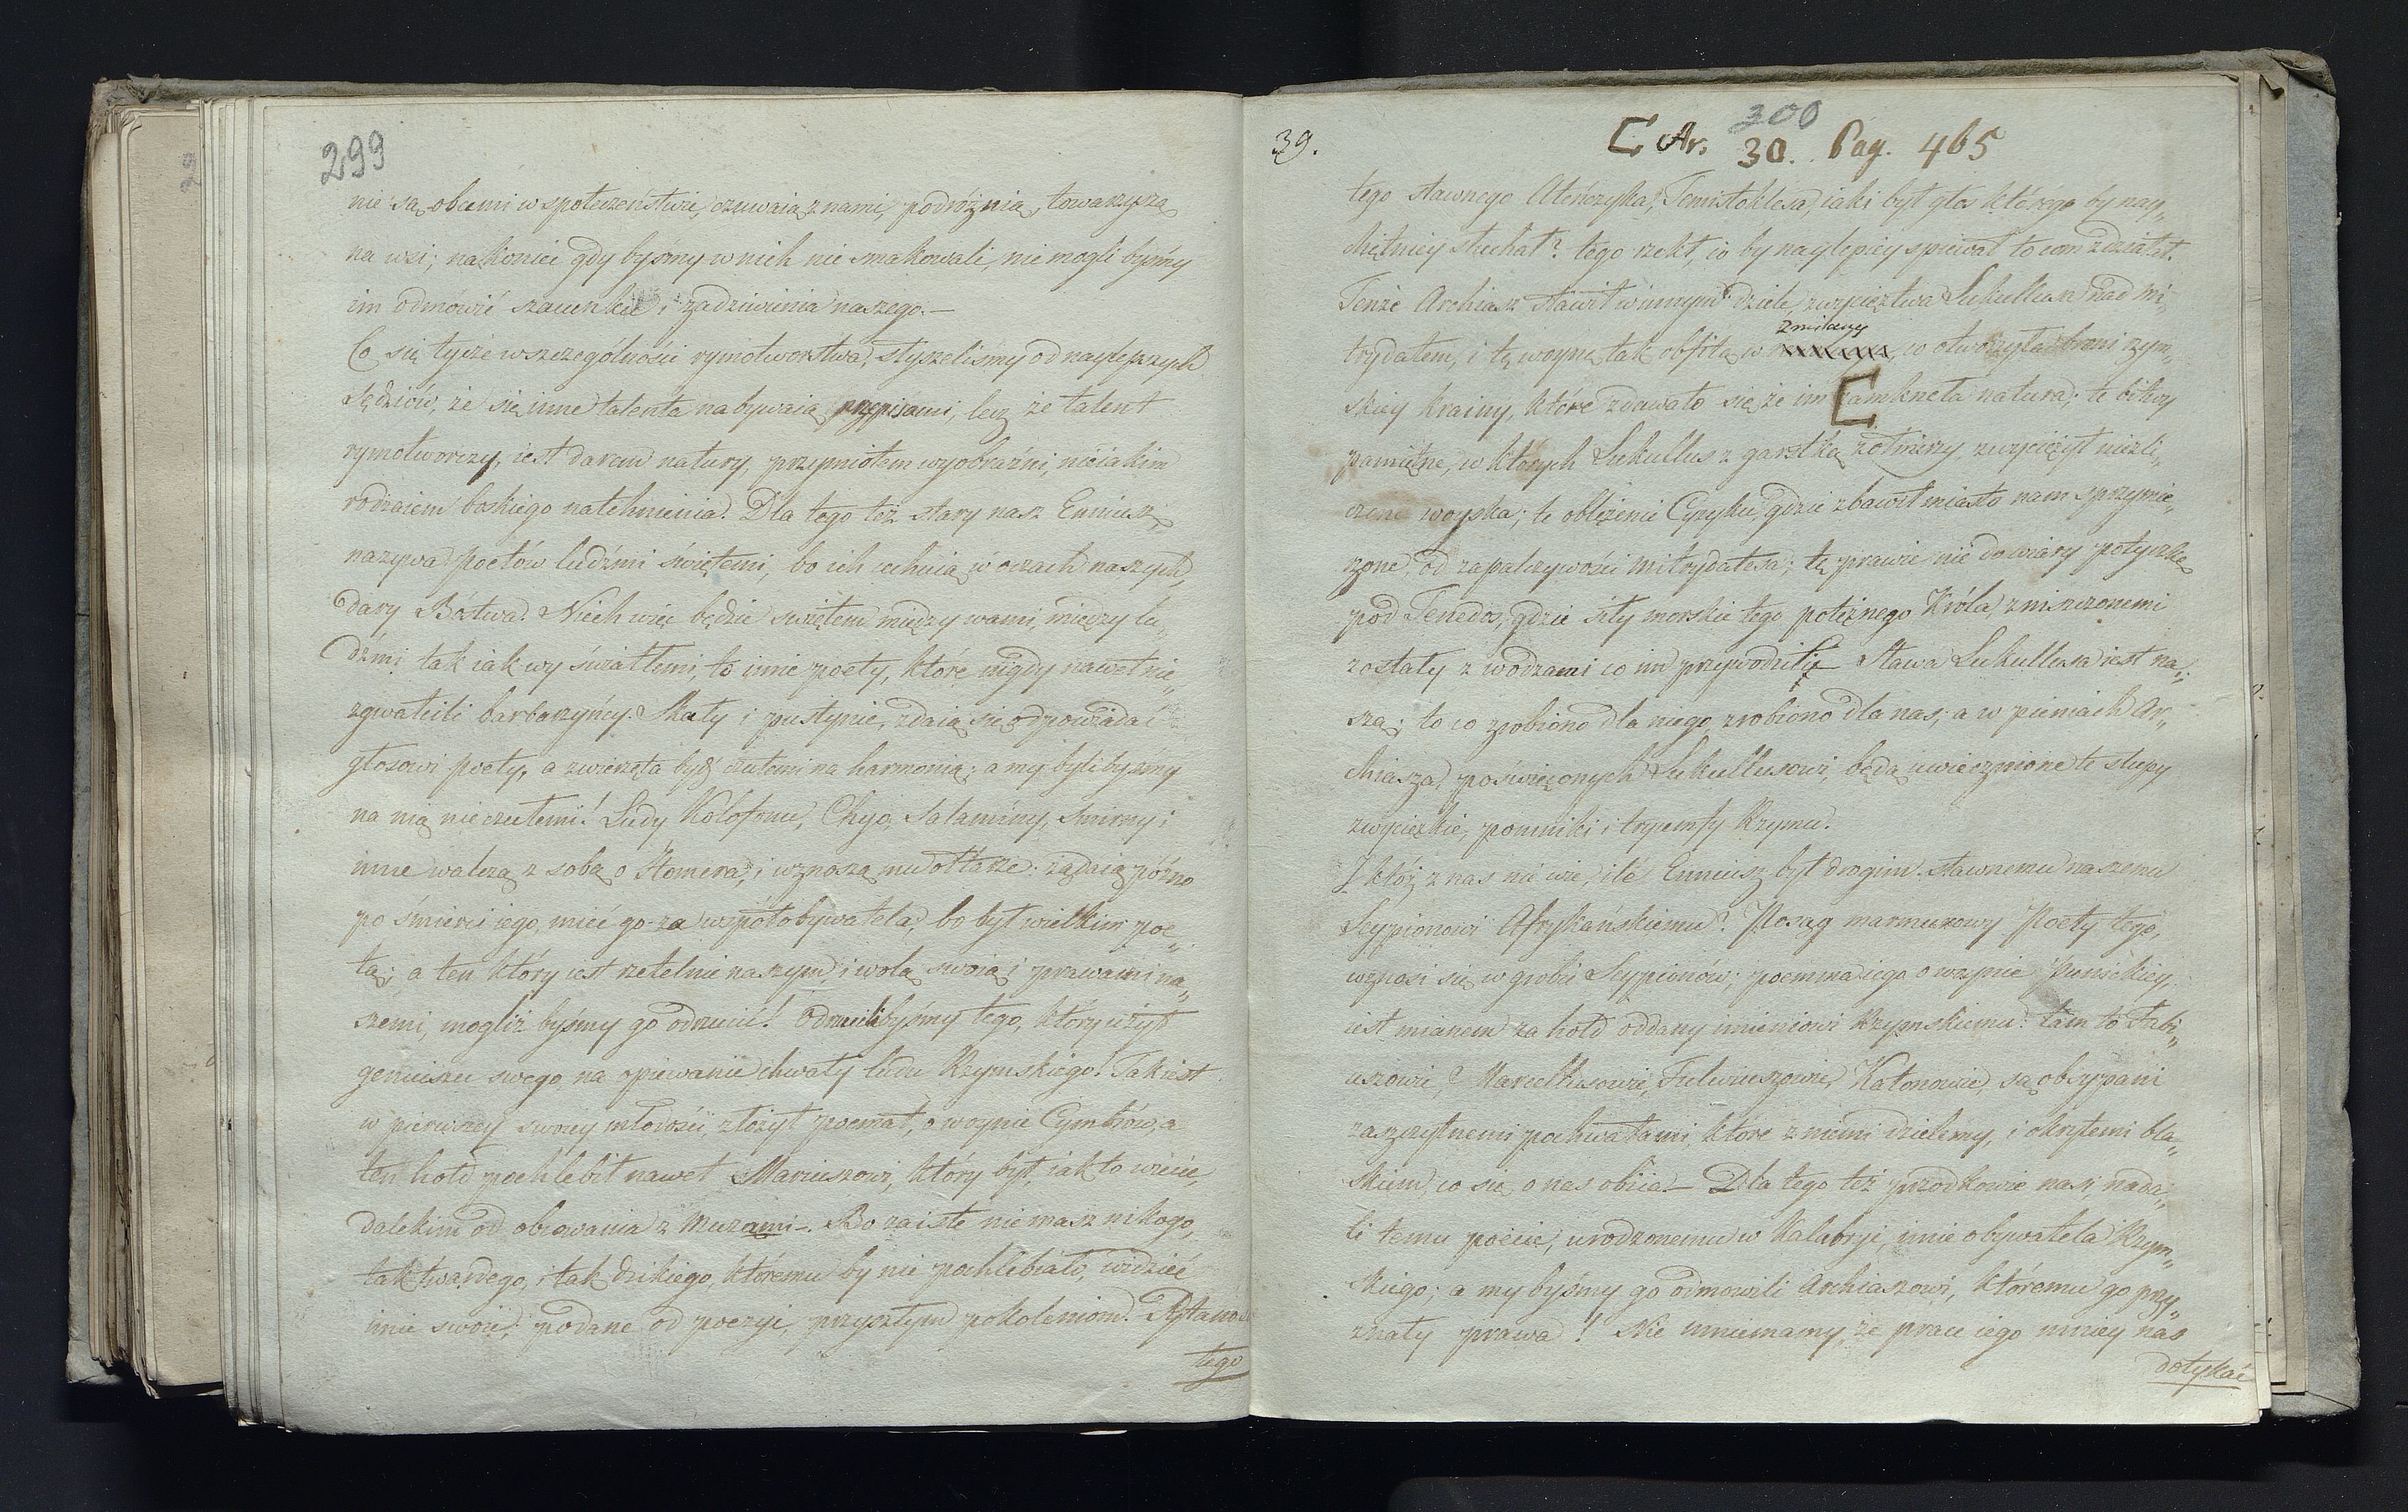 299
nie są obcemi w społeczeństwie, czuwaią z nami, podróżuią, towarzyszą
na wsi; nakoniec gdy byśmy w nich nie smakowali, nie mogli byśmy
im odmówić szacunku i zadziwienia naszego.—
Co się tycze wszczególności rymotworstwa, słyszeliśmy od naylepszych
sędziów, że się inne talenta nabywaią przepisami, lecz że talent
rymotworczy, iest darem natury, przymiotem wyobraźni, nieiakim
rodzaiem boskiego natchnienia. Dla tego też stary nasz Enniusz,
nazywa Poetów ludźmi świętemi, bo ich cechuią w oczach naszych,
dary Bóstwa. Niech więc będzie świętem między wami, między lu„
dźmi tak iak wy światłemi, to imie poety, które nigdy nawet nie„
zgwałcili barbarzyńcy. Skały i pustynie, zdaią się odpowiadać
głosowi poety, a zwierzęta być czułemi na harmonią; a my bylibyśmy
na nią nieczułemi! Ludy Kolofonu, Chyo, Salaminy, Smirny i
inne walczą z sobą o Homera, i wznoszą mu ołtarze: żądaią późno
po śmierci iego, mieć go za współobywatela, bo był wielkim poe„
tą; a ten który iest rzetelnie naszym, i wolą swoią i prawami na„
szemi, mogliż byśmy go odrzucić! Odrzucilibyśmy tego, który użył
geniuszu swego, na opiewanie chwały ludu Rzymskiego! Tak iest
w pierwszey swoiey młodości, złożył poemat, o woynie Cymbrów, a
ten hołd pochlebił nawet Mariuszowi, który był, iak to wiecie,
dalekim od obcowania z Muzami—. Bo zaiste nie masz nikogo,
tak twardego, i tak dzikiego, któremu by nie pochlebiało, widzieć
imie swoie, podane od poezyi, przyszłym pokoleniom. Pytano
tego
39.
300
[ Ar. 30. Pag. 465
tego sławnego Ateńczyka, Temistoklesa, iaki był głos którego by nay„
chętniey słuchał? tego rzekł, co by naylepiey spiewał to com zdziałał.
Tenże Archiasz sławił w innym dziele, zwycięztwa Lukullusa nad Mi„
trydatem, i tę woynę tak obfitą w
zmiany
, co otworzyła broni rzym„
skiey krainy, które zdawało się że im [zamknęła natura; te bitwy
pamiętne, w których Lukullus z garstką żołnierzy, zwyciężył niezli„
czone woyska; te oblężenie Cyzyku, gdzie zbawił miasto nam sprzymie„
rzone, od zapalczywości Mitrydatesa; tę prawie nie do wiary potyczkę
pod Tenedos, gdzie siły morskie tego potężnego Króla, zniszczonemi
zostały z wodzami co im przywodzili— Sława Lukullusa iest na„
szą; to co zrobiono dla niego, zrobiono dla nas; a w pieniach Ar„
chiasza, poświęconych Lukullusowi, będą uwiecznione te słupy
zwycięzkie, pomniki i tryumfy Rzymu.
I któż z nas nie wie, ile Enniusz był drogim sławnemu naszemu
Scypionowi Afrykańskiemu? Posąg marmurowy Poety tego,
wznosi się w grobie Scypionów; poemma iego o woynie Punickiey,
iest mianem za hołd oddany imieniowi Rzymskiemu: tam to Fabi„
uszowie, Marcellusowie, Fulwiuszowie, Katonowie, są obsypani
zaszczytnemi pochwałami, które z niemi dzielemy, i okrytemi bla„
skiem, co się o nas obiia.— Dla tego też przodkowie nasi, nada„
li temu poecie, urodzonemu w Kalabryi, imie obywatela Rzym„
skiego; a my byśmy go odmowili Archiaszowi, któremu go przy„
znały prawa! Nie mniemamy, że prace iego mniey nas
dotykać